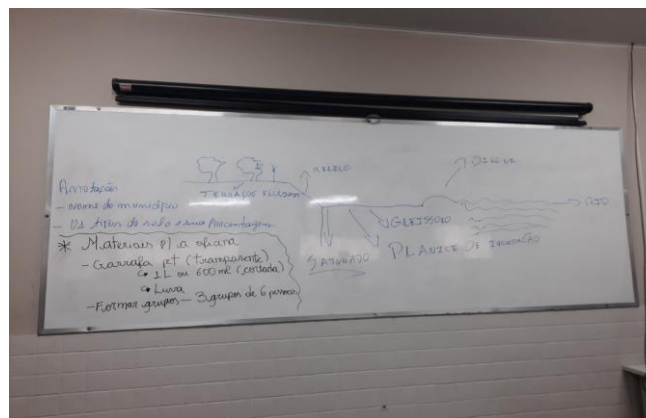 Anotação
- Nome do município
- Os tipos de solo e sua porcentagem
* Materiais p/ a oficina
- Garrafa pet (transparente)
1L ou 600 ml (cortada)
Luva
- Formar grupos - 3 grupos de 6 pessoas
TERRAÇOS FLUVIAIS
DIQUE
RIO
GLEISSOLO
SATURADO
PLANICE DE INUNDAÇÃO